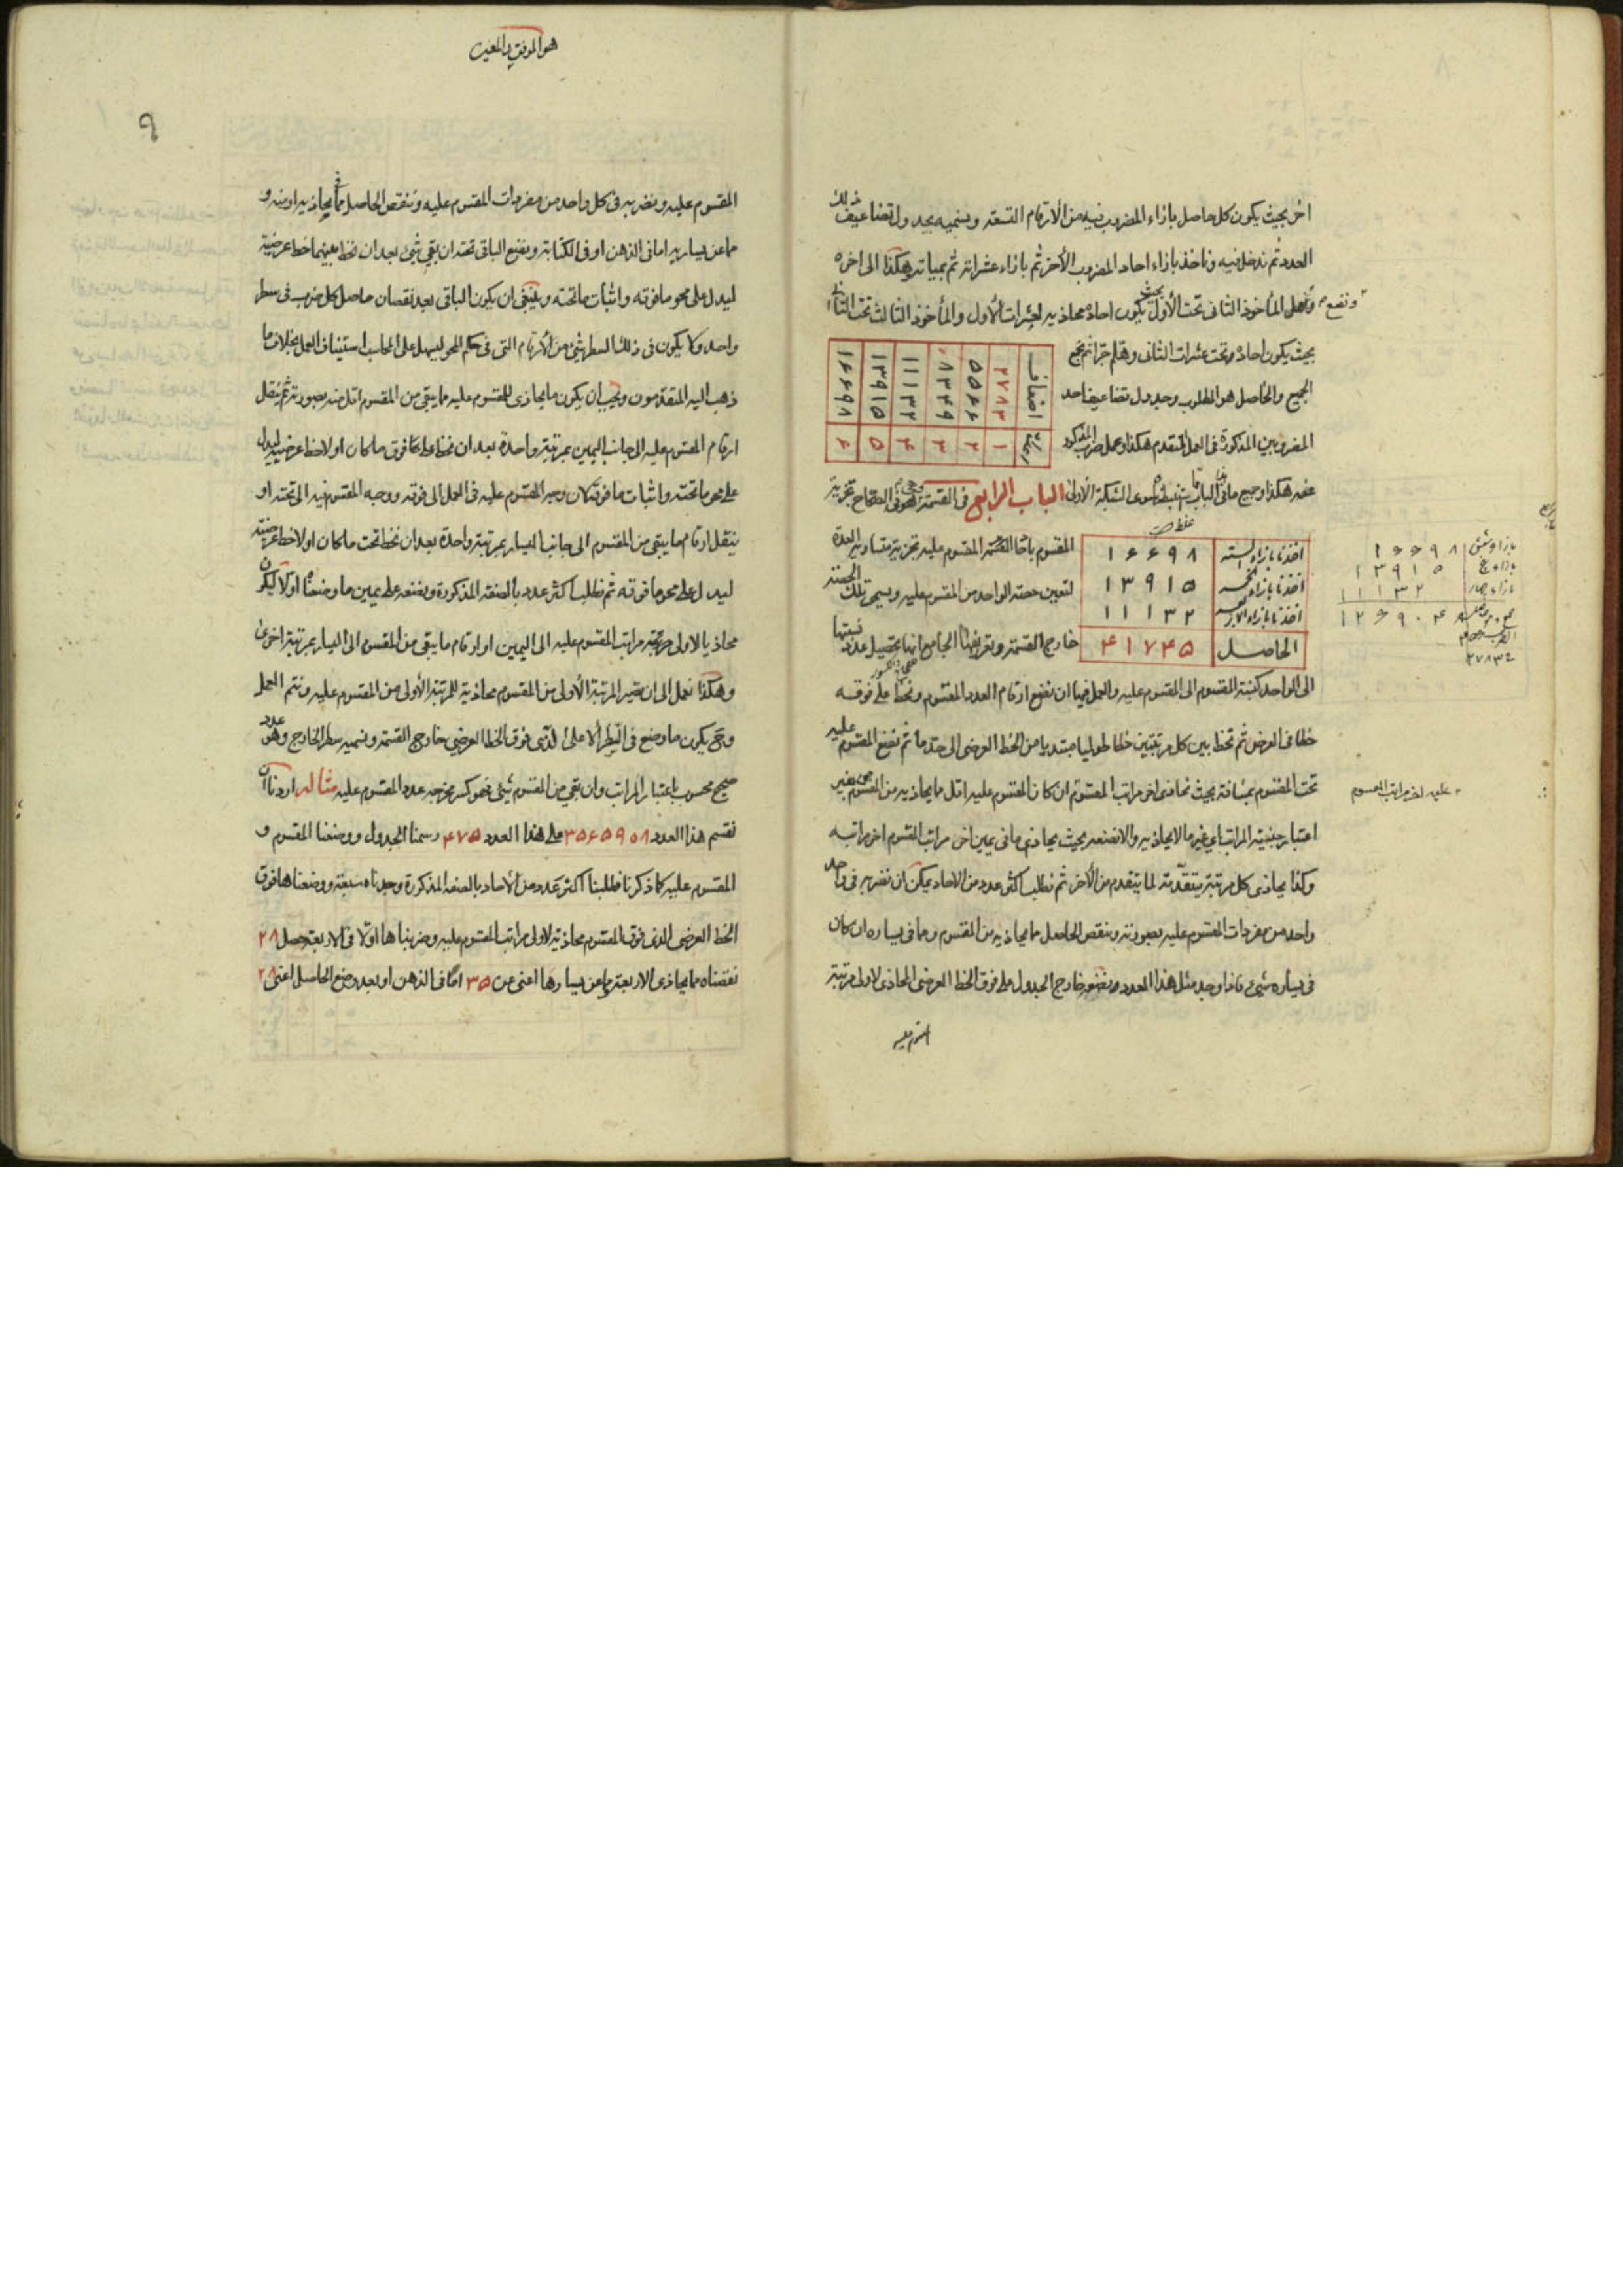 اخر بحيث يكون كل حاصل بازاء المضروب فيه من الأرقام التسعة ونسميه بجدول تضاعيف ذلك
العدد ثم ندخل فيه وناخذ بازاء احاد المضروب الأخر ثم بازاء عشراته ثم بمياته وهكذا الى اخره
ونضع المأخوذ الثانى تحت الأول بحيث يكون احاده محاذيه لعشرات الأول والمأخوذ الثالث تحت الثانى
بحيث يكون احاده تحت عشرات الثانى وهلم جرا ثم نجمع
الجميع والحاصل هو المطلوب وجدول تضاعيف احد
المضروبين المذكورة فى العمل المتقدم هكذا وعمل ضرب المذكور
اضعاف ٢٧٨٣ ٥٥٦٦ ٨٣٤٩ ١١١٣٢ ١٣٩١٥ ١٦٦٩٨
١ ٢ ٣ ٤ ٥ ٦
هكذا وجميع ما فى الباب سوى الشبكة الأولى الباب الرابع فى القسمة وهو فى الصحاح تجزية
اخذنا بازاء الستة ١٦٦٩٨
اخذنا بازاء الخمسه ١٣٩١٥
اخذنا بازاء الاربعه ١١١٣٢
الحاصل ٤١٧٤٥
المقسوم باحاد المقسوم عليه تجزية متساوية العدة
لتعين حصة الواحد من المقسوم عليه ويسمى تلك الحصة
خارج القسمة وتعريفها الجامع انها تحصيل عدد نسبتها
الى الواحد كنسبة المقسوم الى المقسوم عليه والعمل فيها ان نضع ارقام العدد المقسوم ونخط على فوقه
خطا فى العرض ثم نخط بين كل مرتبتين خطا طوليا مبتديا من الخط العرضى الى حد ما ثم نضع المقسوم عليه
تحت المقسوم بمسافة بحيث يحاذى اخر مراتب المقسوم ان كان المقسوم عليه اقل مما يحاذيه من المقسوم من غير
اعتبار جنسية المراتب اى غير ما لا يحاذيه والا نضعه بحيث يحاذى ما فى يمين اخر مراتب المقسوم اخر مراتبه
وكذا يحاذى كل مرتبة متقدمة لما يتقدم من الأخر ثم نطلب اكثر عدد من الاحاد يمكن ان نضربه فى واحد
واحد من مفردات المقسوم عليه بصورته وننقص الحاصل مما يحاذيه من المقسوم ومما فى يساره ان كان
فى يساره شىء فاذا وجد مثل هذا العدد نضعه خارج الجدول على فوق الخط العرضى المحاذى لاولى مرتبة
المقسوم عليه
عليه اخر مراتب المقسوم
١٦٦٩٨
١٣٩١٥
١١١٣٢
هو الموفق والمعين
٩
المقسوم عليه ونضربه فى كل واحد من مفردات المقسوم عليه وننقص الحاصل مما يحاذيه او منه و
مما عن يساره اما فى الذهن او فى الكتابة ونضع الباقى تحته ان بقى شىء بعد ان نخط بينهما خطا عرضية
ليدل على محو ما فوقه واثبات ما تحته وينبغى ان يكون الباقى بعد نقصان حاصل كل ضرب فى سطر
واحد ولا يكون فى ذلك السطر شىء من الأرقام التى فى حكم المحو ليسهل على المحاسب استيناف العمل بخلاف ما
ذهب اليه المتقدمون ويجب ان يكون ما يحاذى للمقسوم عليه مما يبقى من المقسوم اقل منه بصورته ثم ننقل
ارقام المقسوم عليه الى جانب اليمين بمرتبة واحدة بعد ان نخط على ما فوق ما كان اولا خطا عرضيه ليدل
على محو ما تحته واثبات ما فوقه كان وجه المقسوم عليه فى العمل الى فوقه ووجه المقسوم فيه الى تحته او
ننقل ارقام ما يبقى من المقسوم الى جانب اليسار بمرتبة واحدة بعد ان نخط تحت ما كان اولا خطا عرضيته
ليدل على محو ما فوقه ثم نطلب اكثر عدد بالصفة المذكورة ونضعه على يمين ما وضعناه اولا ليكون
محاذيا لاولى مرتبة مراتب المقسوم عليه الى اليمين او ارقام ما يبقى من المقسوم الى اليسار بمرتبة اخرى
وهكذا نعمل الى ان تصير المرتبة الأولى من المقسوم محاذية للمرتبة الأولى من المقسوم عليه ونتم العمل
وح يكون ما وضع فى السطر الأعلى الذى فوق الخط العرضى خارج القسمة ونسميه سطر الخارج وهو عدد
صحيح محسوب باعتبار المراتب وان بقى من المقسوم شىء فهو كسر مخرجه عدد المقسوم عليه مثاله اردنا ان
نقسم هذا العدد ٣٥٦٥٩٠٨ على هذا العدد ٤٧٥ رسمنا الجدول ووضعنا المقسوم و
المقسوم عليه كما ذكرنا فطلبنا اكثر عدد من الاحاد بالصفه المذكورة وجدناه سبعة ووضعناها فوق
الخط العرضى الذى فوق المقسوم محاذية لاولى مراتب المقسوم عليه وضربناها اولا فى الاربعة حصل ٢٨
نقصناه مما يحاذى الاربعة وما عن يسارها اعنى من ٣٥ اما فى الذهن او بعد وضع الحاصل اعنى ٢٨